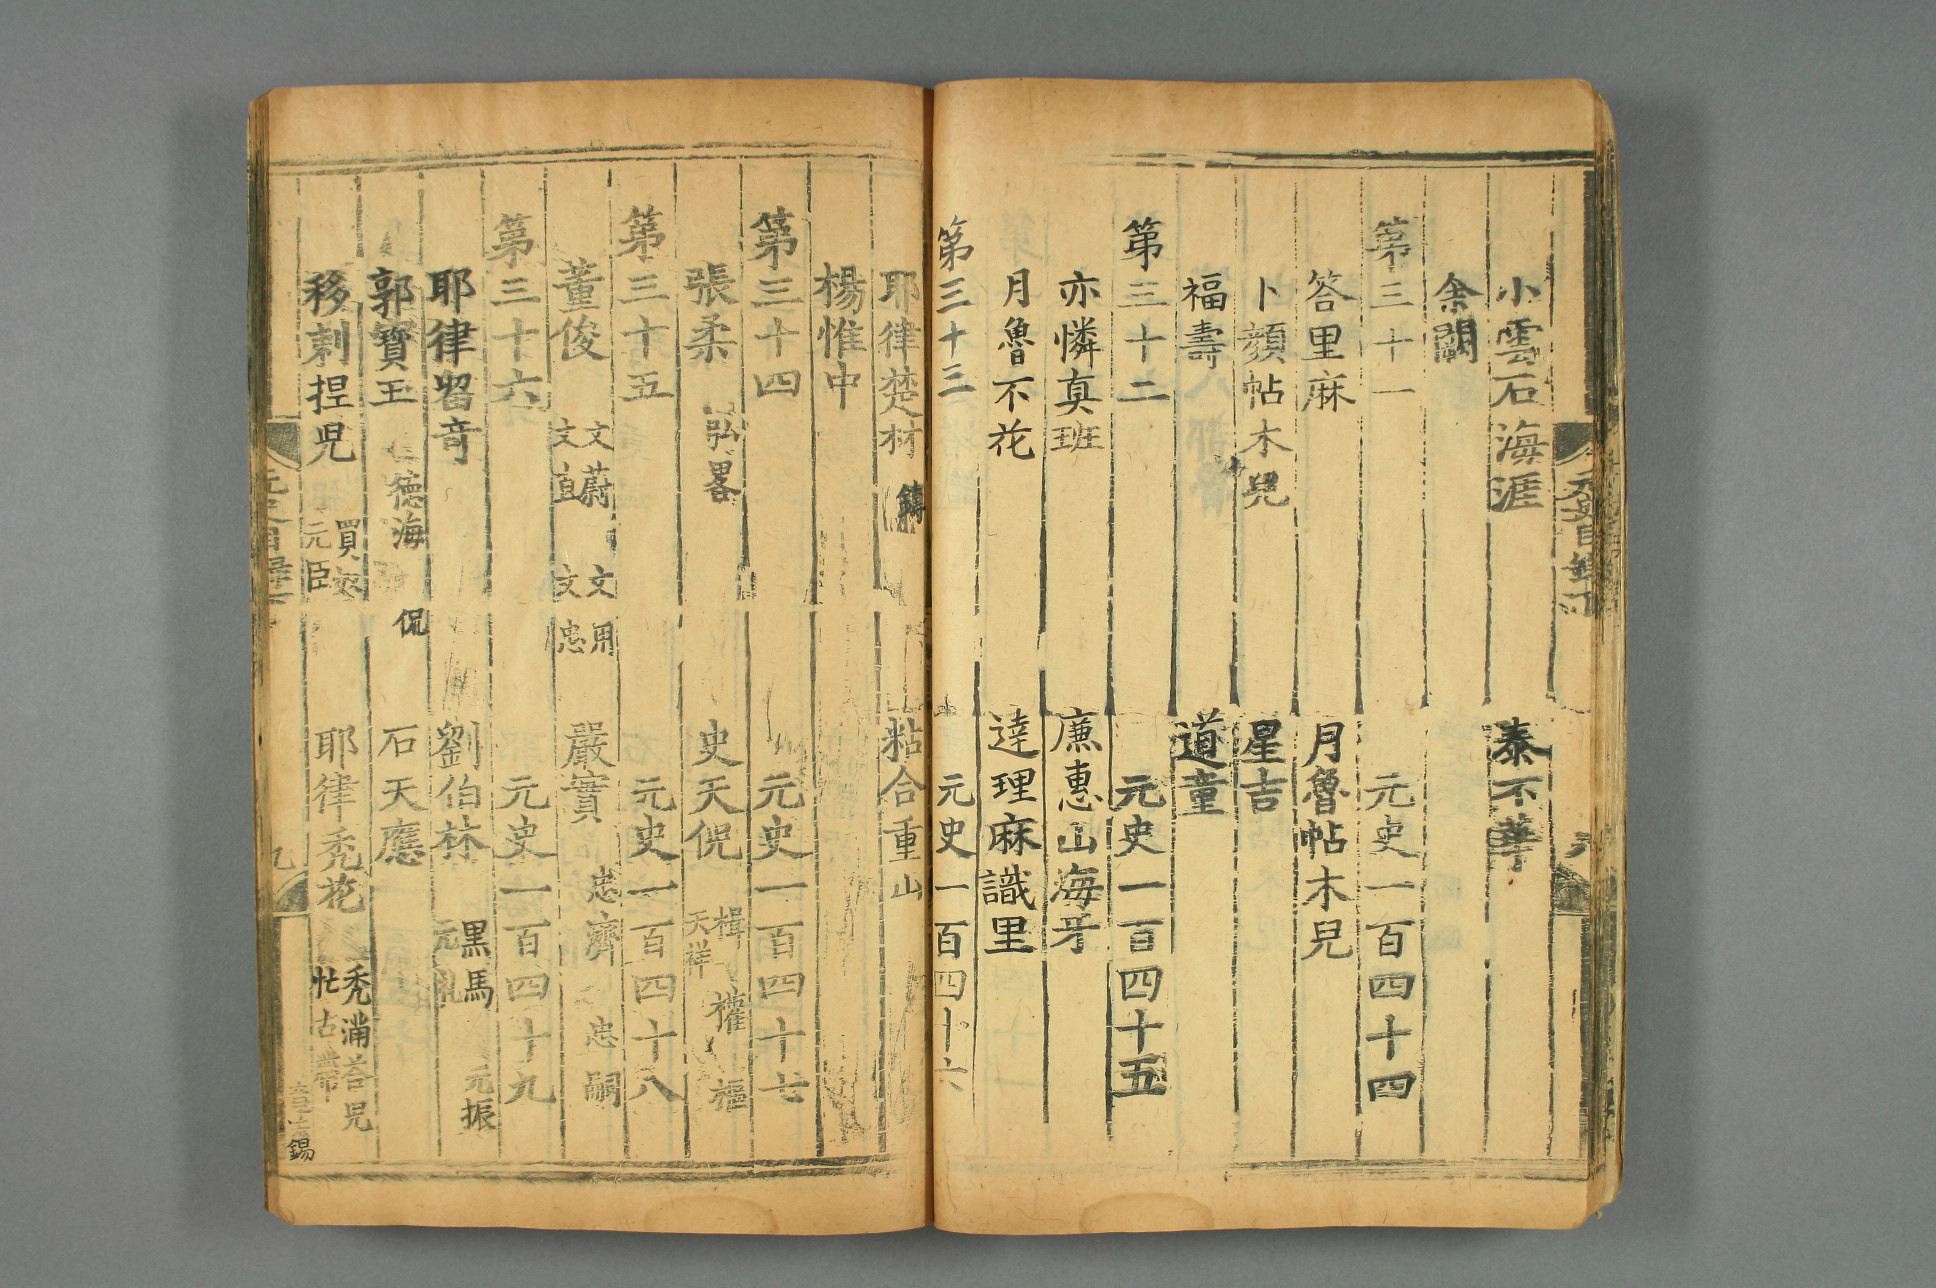 小雲石海涯 泰不華
余闕
第三十一 元史一百四十四
答里麻 月魯帖木兒
卜顏帖木兒 星吉
福壽 道童
第三十二 元史一百四十五
亦憐真班 廉惠山海牙
月魯不花 達理麻識里
第三十三 元史一百四十六
耶律楚材 鑄 粘合重山
楊惟中
第三十四 元史一百四十七
張柔 弘畧 史天倪 楫 權 樞 天祥
第三十五 元史一百四十八
董俊 文蔚 文用 文直 文忠 嚴實 忠濟 忠嗣
第三十六 元史一百四十九
耶律留哥 劉伯林 黑馬 元振 元禮
郭寶玉 德海 侃 石天應
移剌捏兒 買奴 元臣 耶律禿花 禿滿荅兒 忙古帶